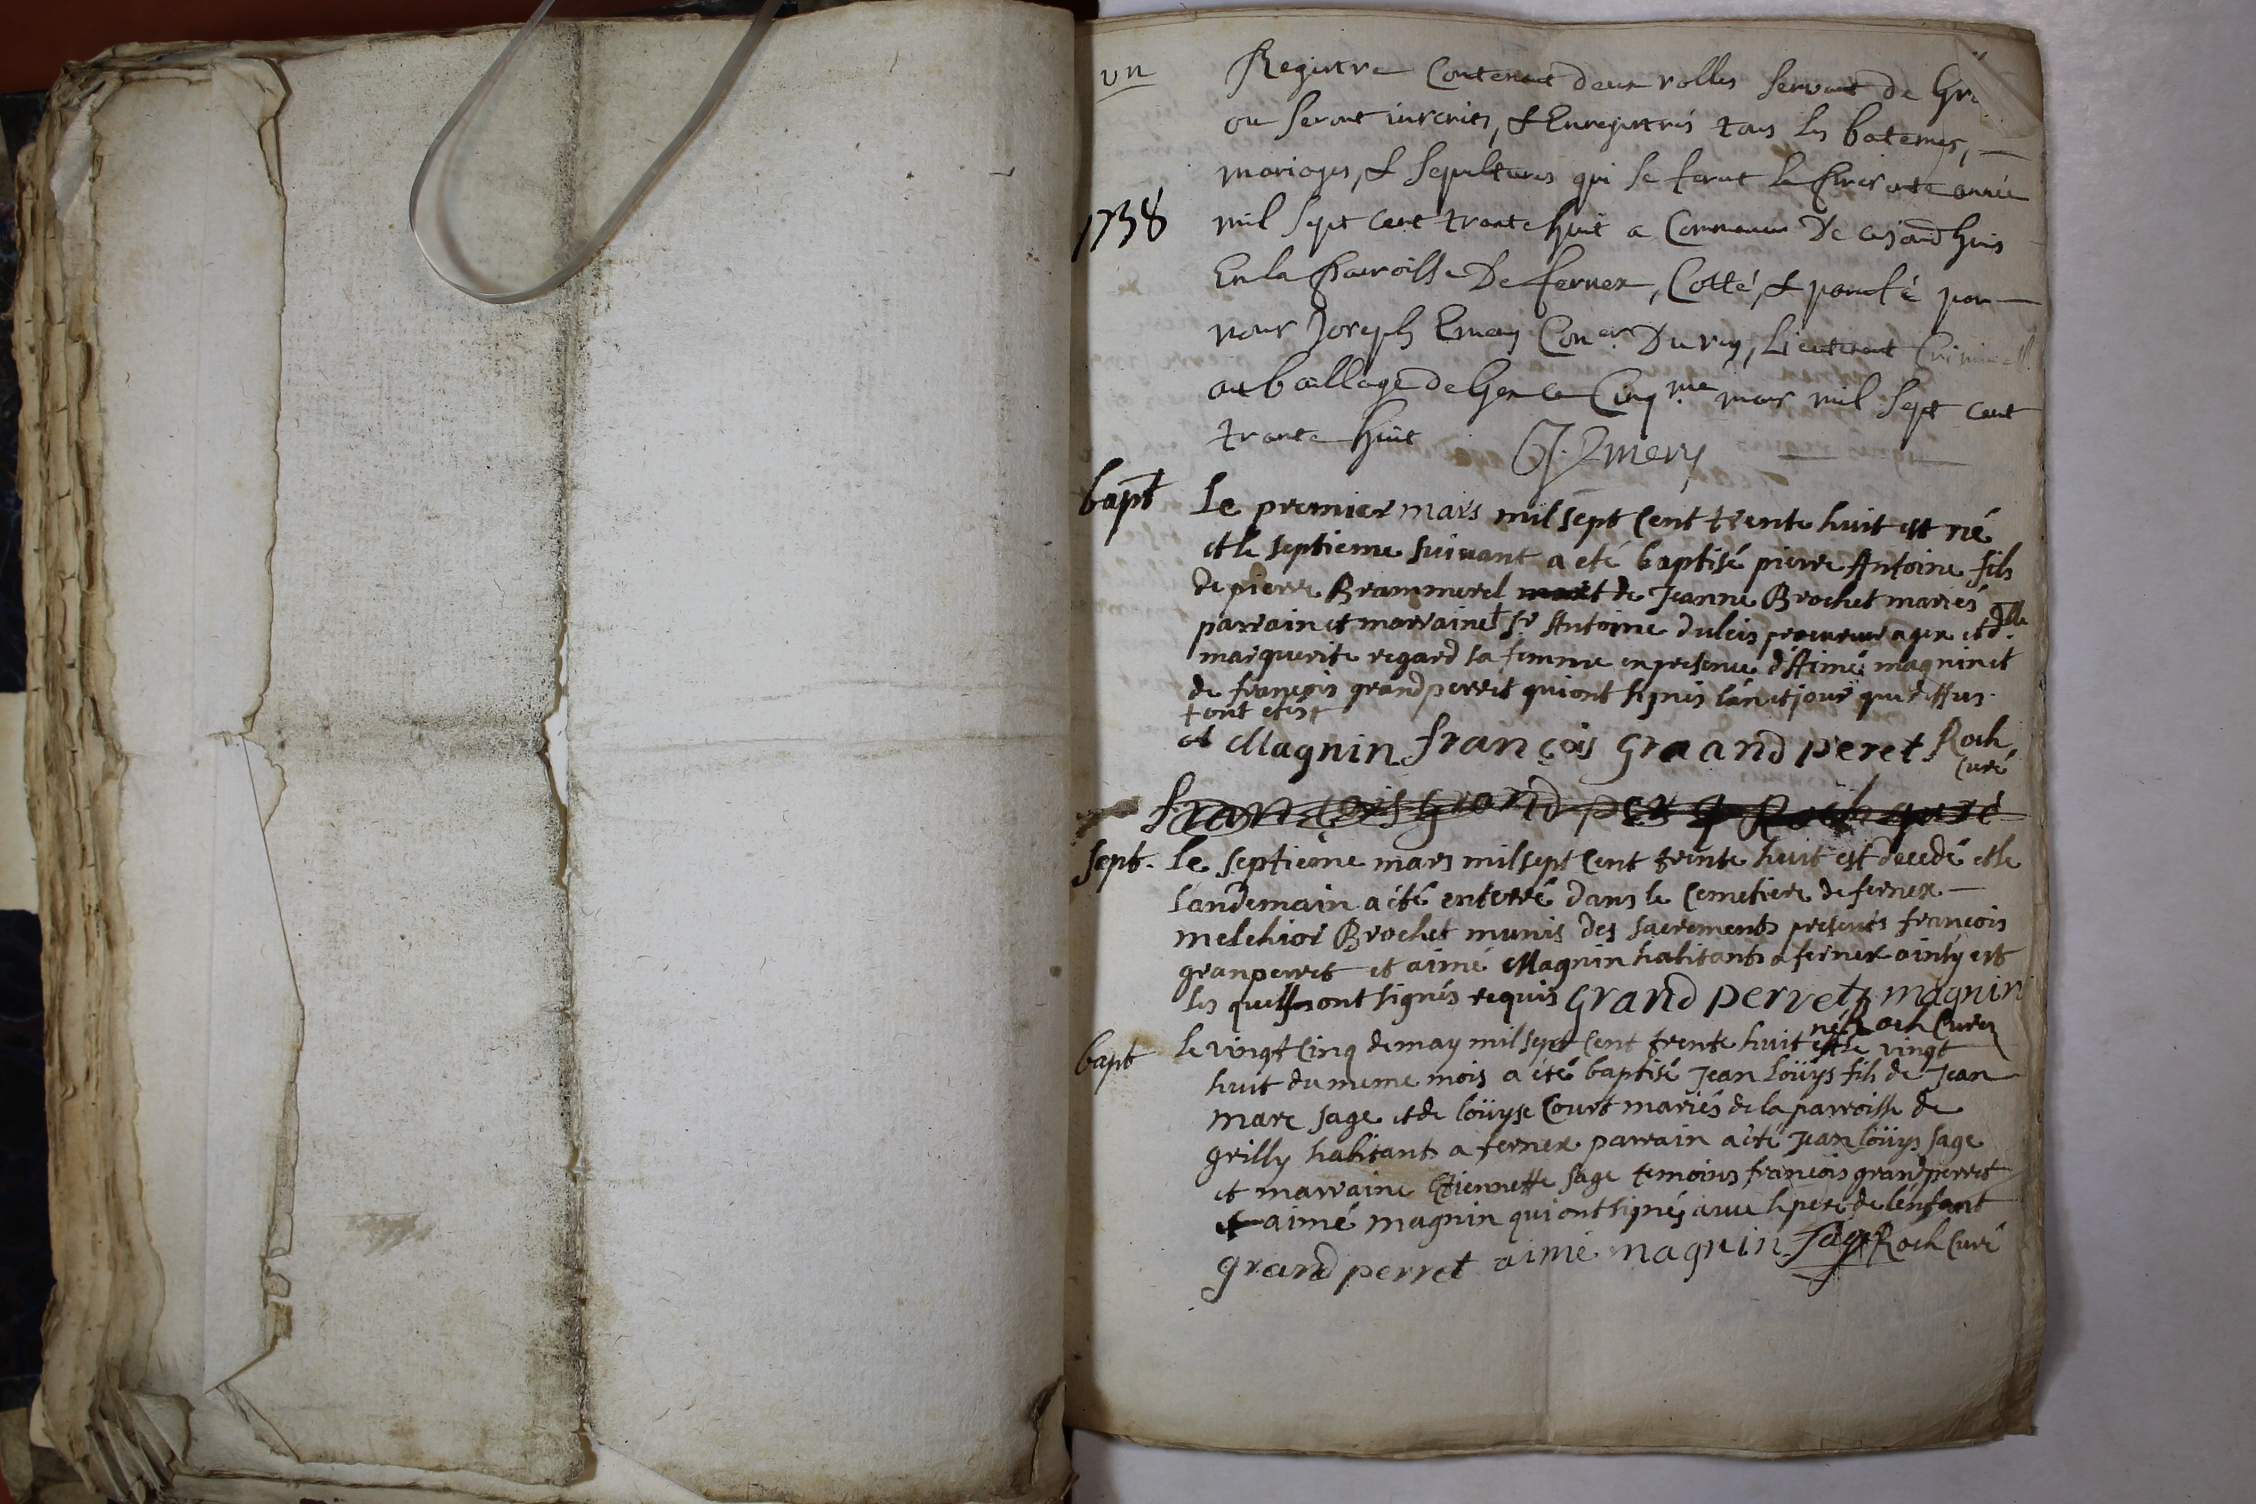 un
Registre Contenant deux rolles servant de
ou seront inscrits, & Enregistrés tous les batemes,
mariages, & sepultures qui se feront la presente année
1738
mil sept cent trente huit a Commencer De cejourdhuis
En la parroisse De fernex, Cotté, & paraffé par
nous Joseph Emery Con.er Du roy, Lieutenant Criminel
au balliage de Gex ce Cinq.me mars mil sept cent
trente huit J. Emery
bapt
Le premier mars mil sept Cent trente huit est né
et le septieme suivant a eté baptisé pierre Antoine fils
de pierre Brammerel et de Jeanne Brochet mariés
parrain et marraine + Sr. Antoine duleis procureur a gex et d.lle
marguerite regard sa femme en presence d'Aimé magnin et
de françois grandperret qui ont signés lan et jour que dessus
+ ont etés +
A Magnin françois Graand peret Roch
Curé
françois grand Roch curé
sept.
Le septieme mars mil sept Cent trente huit est decedé et le
landemain a été enterré dans le Cemetiere de fernex
melchior Brochet munis des sacrements presents françois
granperret et aimé Magnin habitants a fernex
les quells ont signés requis Grand perret magnin
Roch Curé
bapt
le vingt Cinq de may mil sept Cent trente huit est né et le vingt
huit du meme mois a été baptisé Jean Loüys fils de Jean
marc sage et de loüyse Court mariés de la parroisse de
grilly habitants a fernex parrain a été Jean loüys sage
et marraine Etiennette sage temoins françois grandperret
et aimé magnin qui ont signés avec le pere de lenfant
grand perret aimé magnin Sage Roch Curé